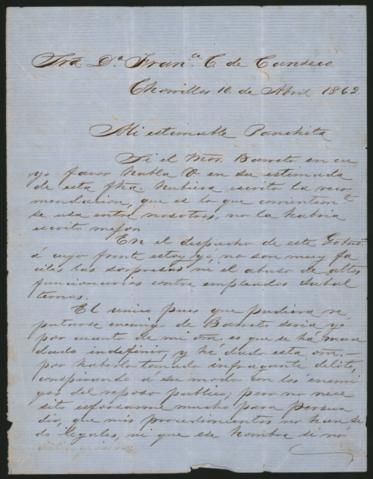 Sra Dª Franca C. de Canseco
Chorrillos 10 de Abril 1862
Mi estimable Panchita
Si el Mor. Barreto en cu
yo favor habla V. en su estimada
de esta fha hubiera escrito la reco
mendacion, que es lo que
se usa entre nosotros, no la habria
escrito mejor.
En el despacho de este Gobno
á cuyo frente estoy yo, no son muy fa
ciles las sorpresas ni el abuso de altos
funcionarios contra empleados subal
ternos.
El unico pues que pudiera re
putarse enemigo de Barreto seria yo
por cuanto de mi orn. es que se ha man
dado indefinido, y he dado esta orn.
por haberlo tomado infraganti delito,
conspirando a su modo con los enemi
gos del reposo publico; pero no nece
sito esforzarme mucho para persua
dir, que mis procedimientos no han si
do ilegales, ni que ese hombre si no